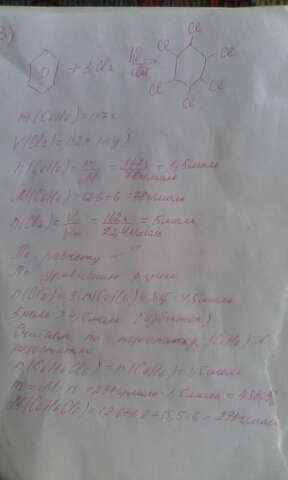 3)
+ 3Cl₂ hν
Cl Cl Cl Cl Cl Cl
m(C₆H₆) = 117г
V(Cl₂) = 112л (н.у)
n(C₆H₆) = m/M = 117г / 78г/моль = 1,5 моль
M(C₆H₆) = 12·6+6 = 78г/моль
n(Cl₂) = V/Vm = 112л / 22,4л/моль = 5моль
По расчету
По уравнению
n(Cl₂) = 3n(C₆H₆) = 4,5моль
5моль > 4,5моль (избыток)
Считаем по недостатку (C₆H₆) в
недостатке
n(C₆H₆Cl₆) = n(C₆H₆) = 1,5моль
m = M·n = 291г/моль · 1,5моль = 436,5
M(C₆H₆Cl₆) = 12·6+6+35,5·6 = 291г/моль